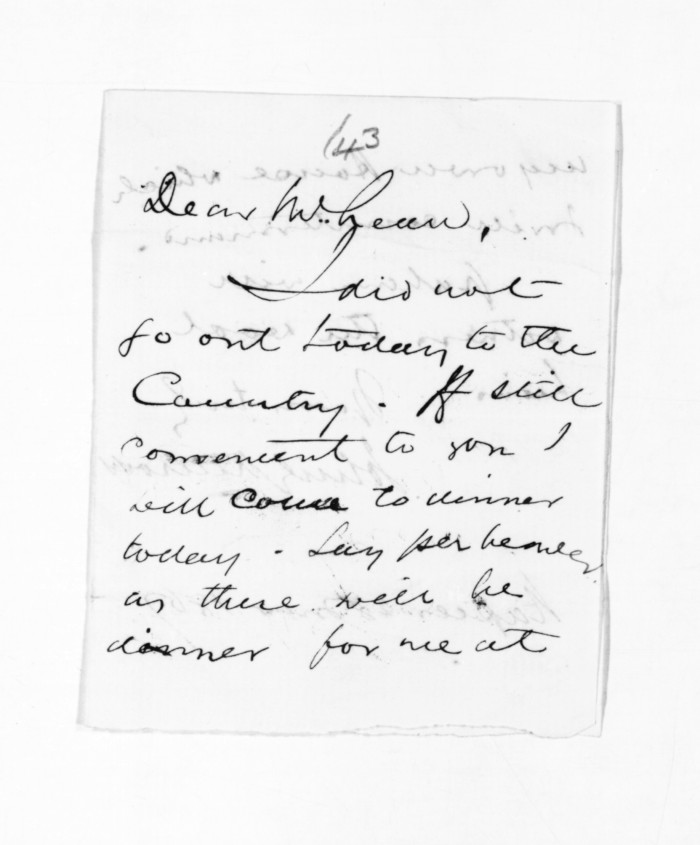 143
Dear McLean,
I did not
go out today to the
Country. If still
convenient to you I
will come to dinner
today - Say per bearer
as there will be
dinner for me at